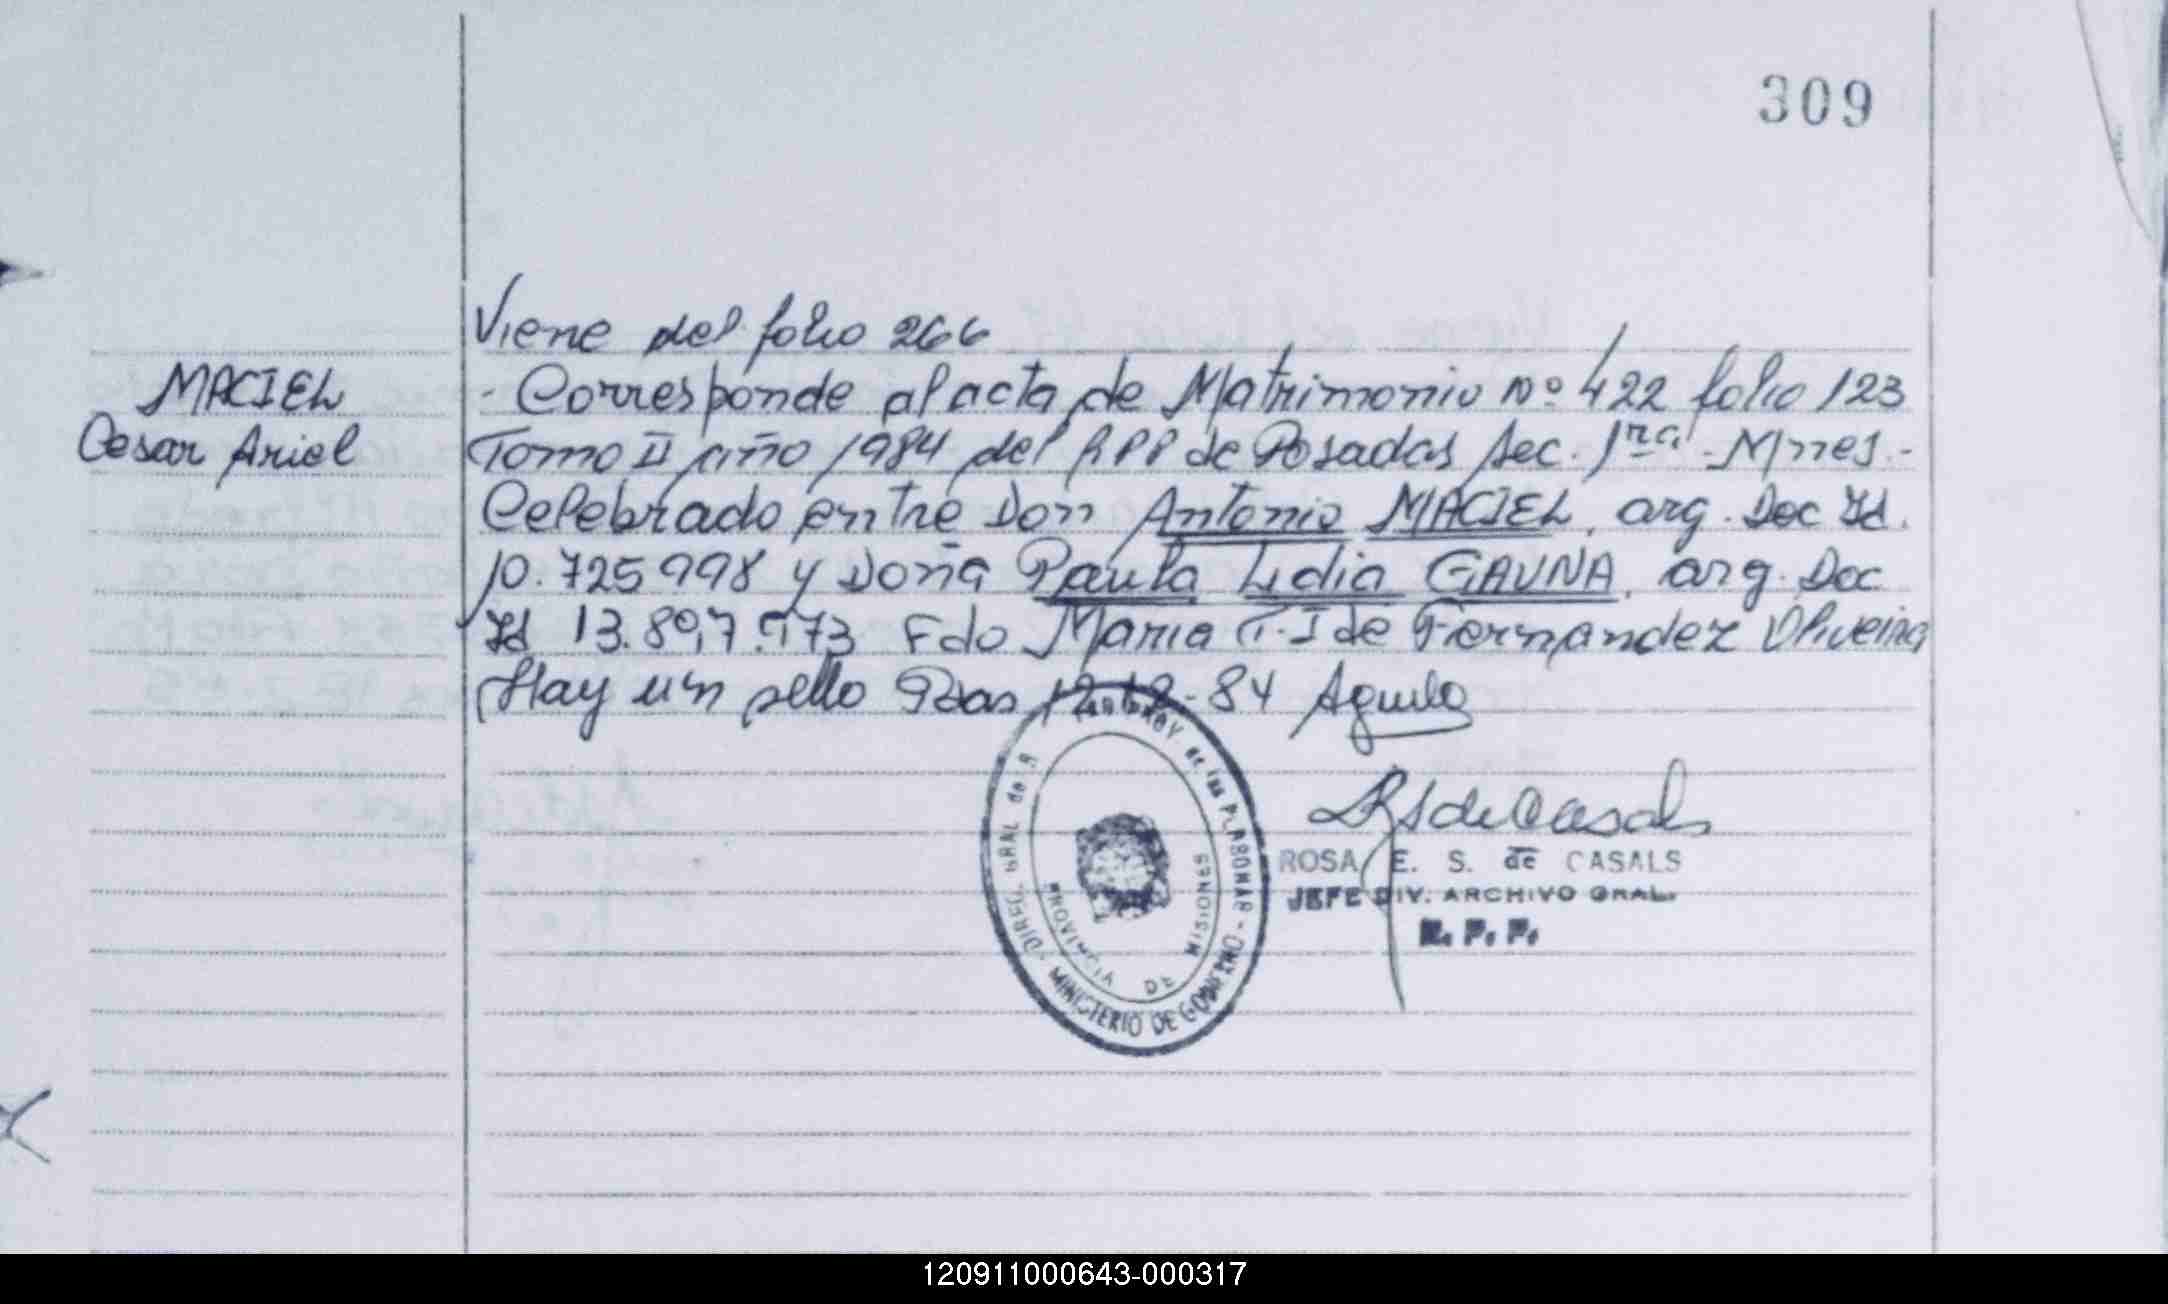 309
Viene del folio 266
MACIEL
Cesar Ariel
- Corresponde al acta de Matrimonio Nº 422 folio 123
Tomo II año 1984 del RPP de Posadas Sec. 1ra - Mnes.-
Celebrado entre Don Antonio MACIEL, arg. Doc Id.
10.725998 y Doña Paula Lidia GAUNA, arg. Doc
Id 13.897.973 Fdo Maria T. I de Fernandez Oliveira
Hay un sello Pdas 12-12-84
MINISTERIO DE GOBIERNO
PROVINCIA DE MISIONES
ROSA E. S. de CASALS
JEFE DIV. ARCHIVO GRAL.
R. P. P.
120911000643-000317